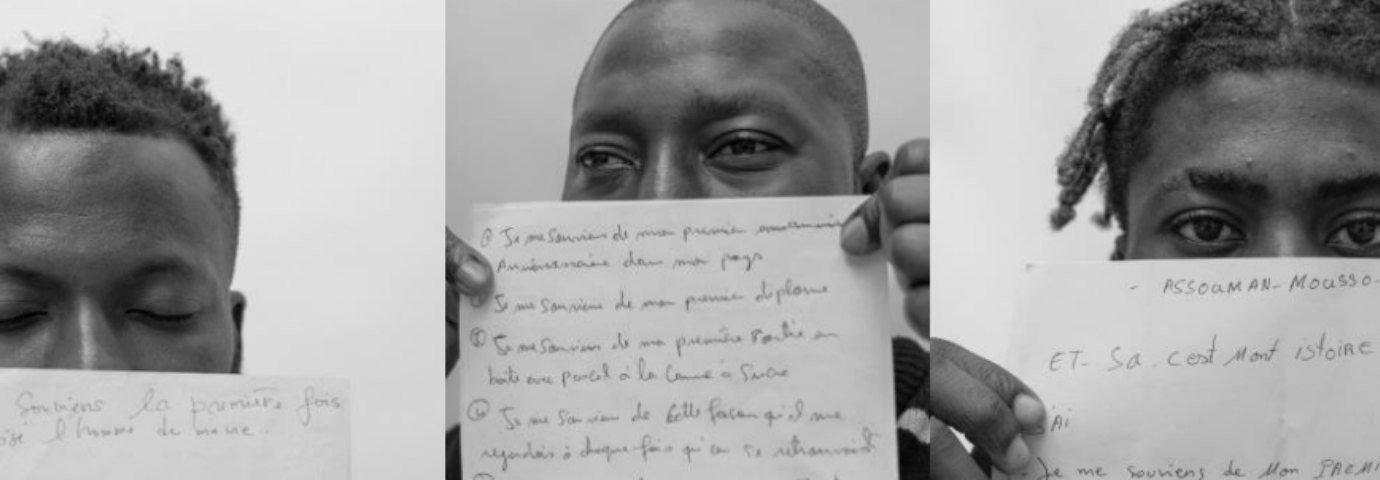 Souviens la première fois
l'homme de ma vie.
① Je me souviens de mon premier
Anniversaire dans mon pays
Je me souviens de mon premier diplome
③ Je me souviens de ma première sortie en
boite avec Pascal à la Canne à Sucre
④ Je me souviens de cette façon qu'il me
regardais à chaque fois qu'on se retrouvait
- ASSOUMAN-MOUSSO-
ET- Sa. C'est Mont istoiRE
'Ai
Je me souviens de Mon PREMI